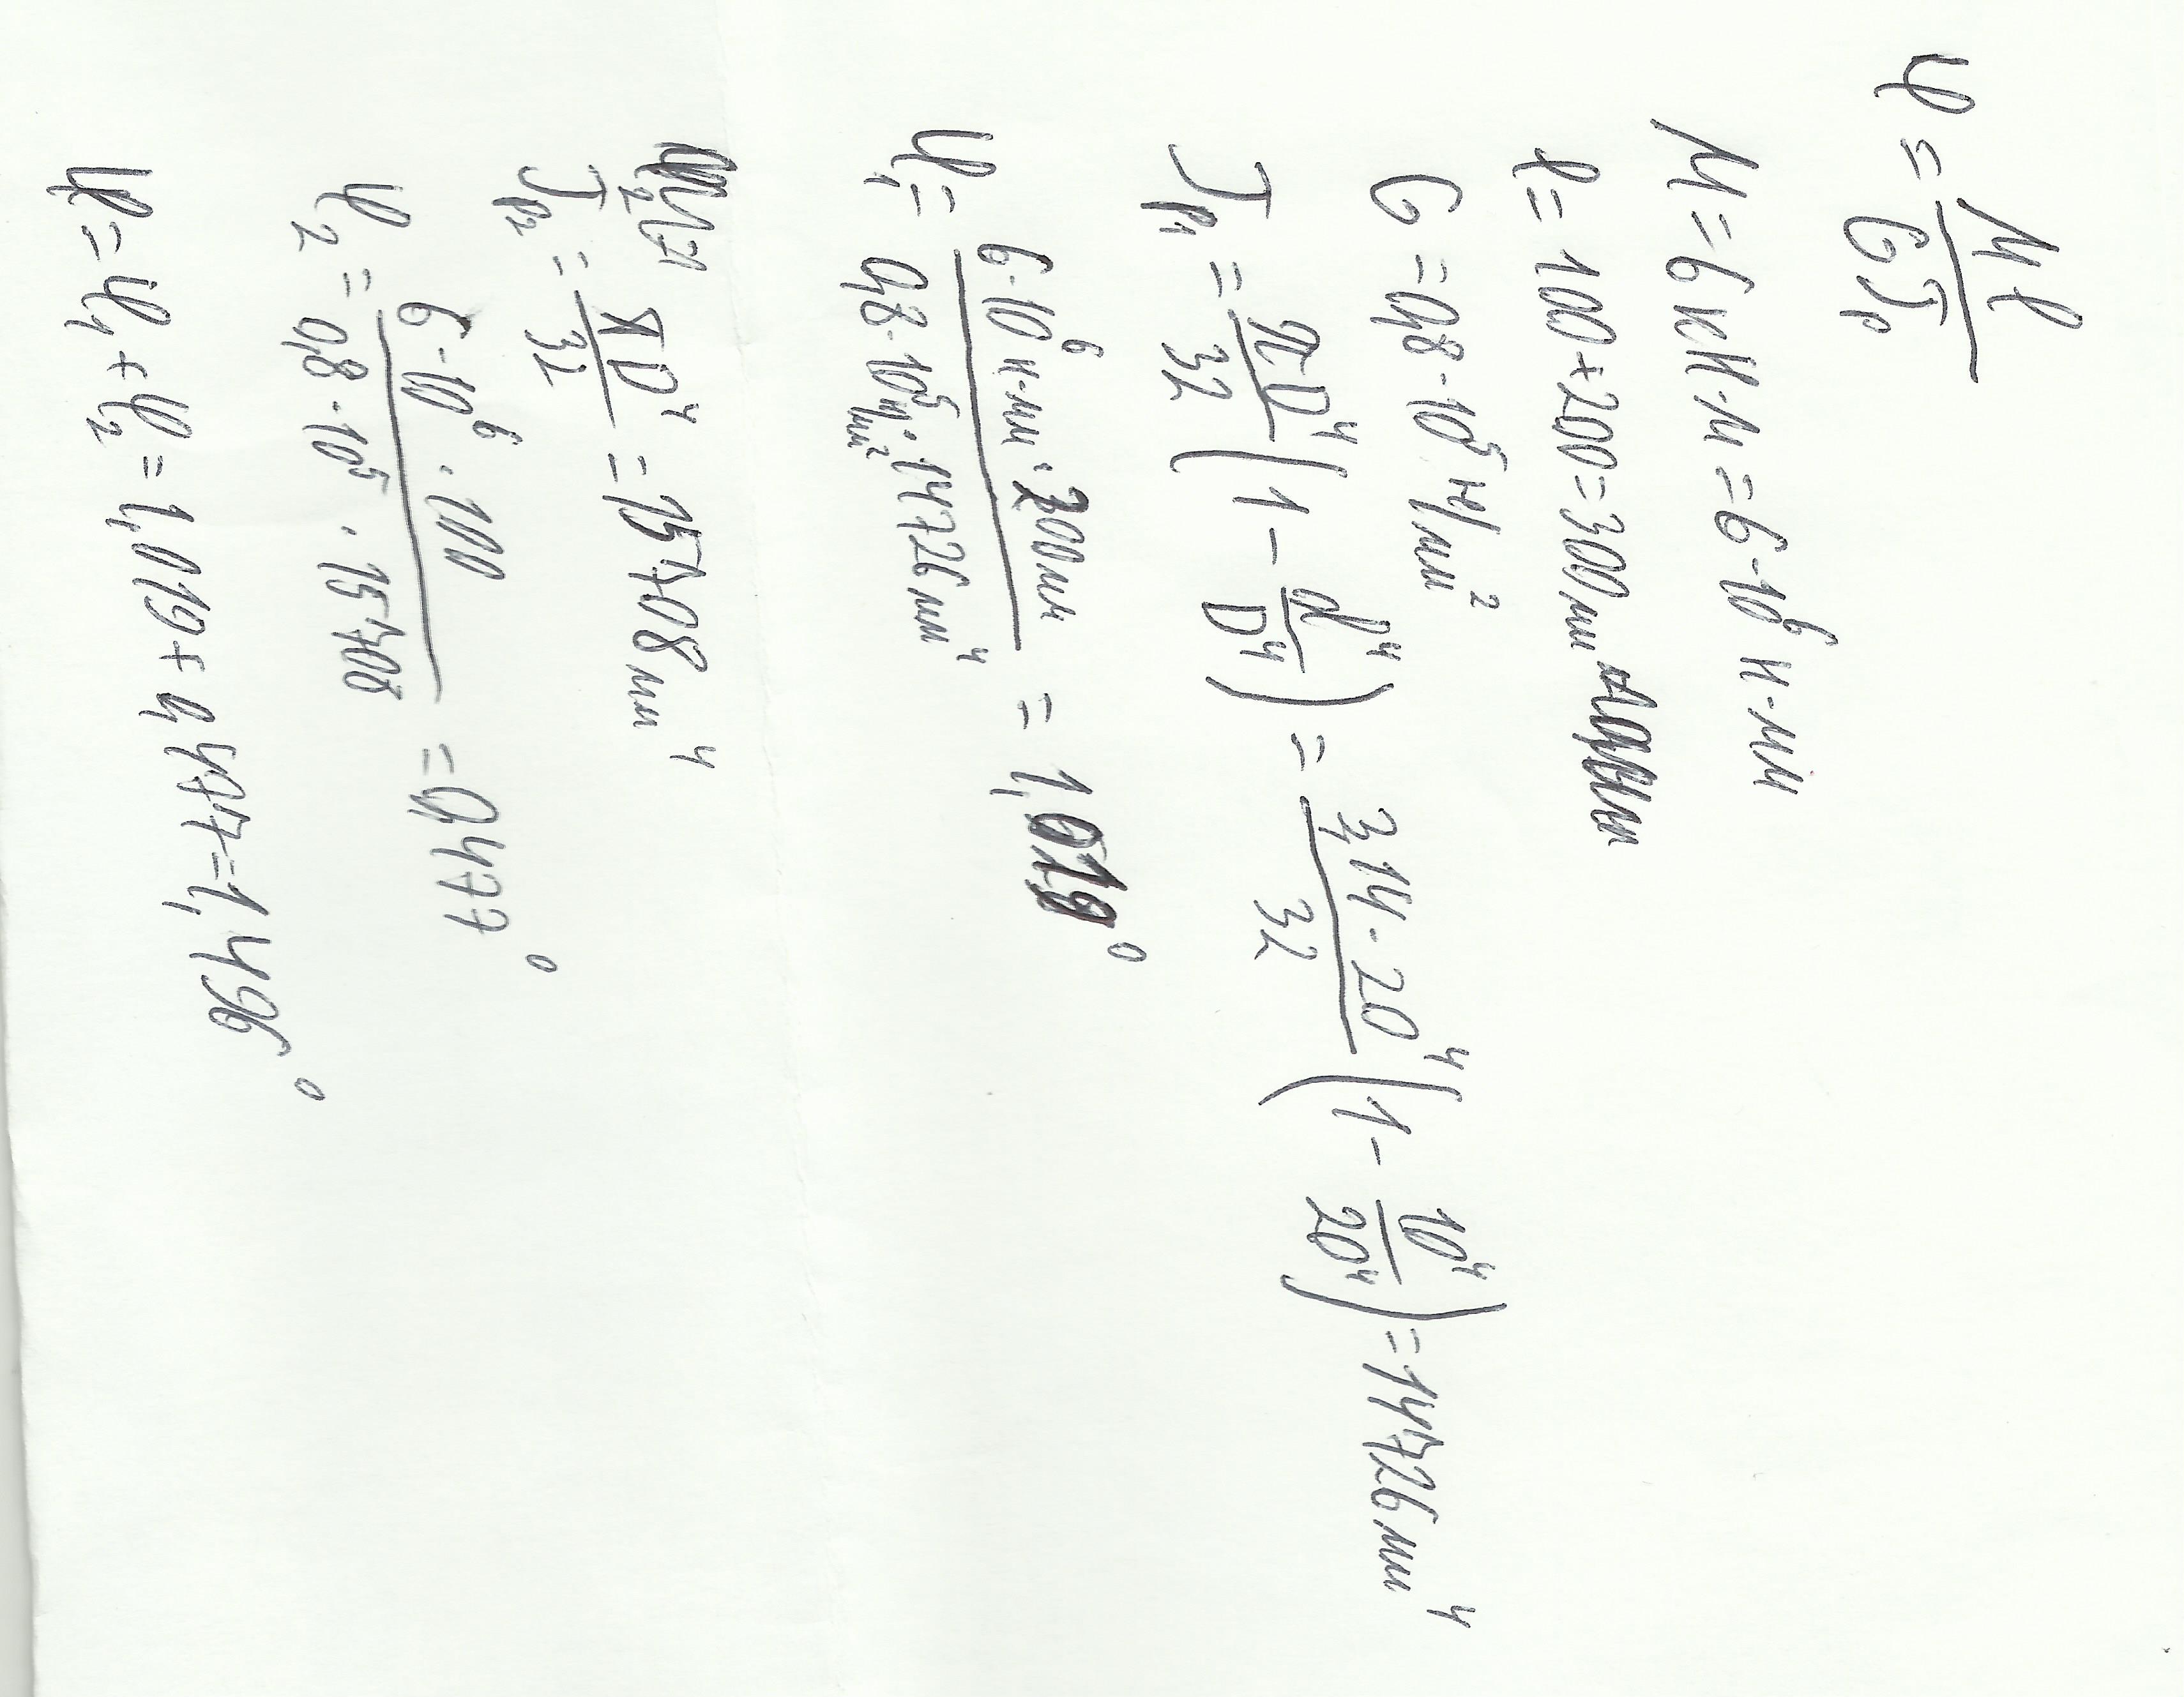 φ = Ml / GJp
M = 6 кН·м = 6·10⁶ Н·мм
l = 100+200=300мм
G = 0,8·10⁵ Н/мм²
Jp1 = πD⁴/32 (1 - d⁴/D⁴) = 3,14·20⁴/32 (1 - 10⁴/20⁴) = 14726мм⁴
φ1 = 6·10⁶ Н·мм·200мм / 0,8·10⁵ Н/мм²·14726мм⁴ = 1,019°
Jp2 = πD⁴/32 = 15708мм⁴
φ2 = 6·10⁶·100 / 0,8·10⁵·15708 = 0,477°
φ = φ1 + φ2 = 1,019 + 0,477 = 1,496°